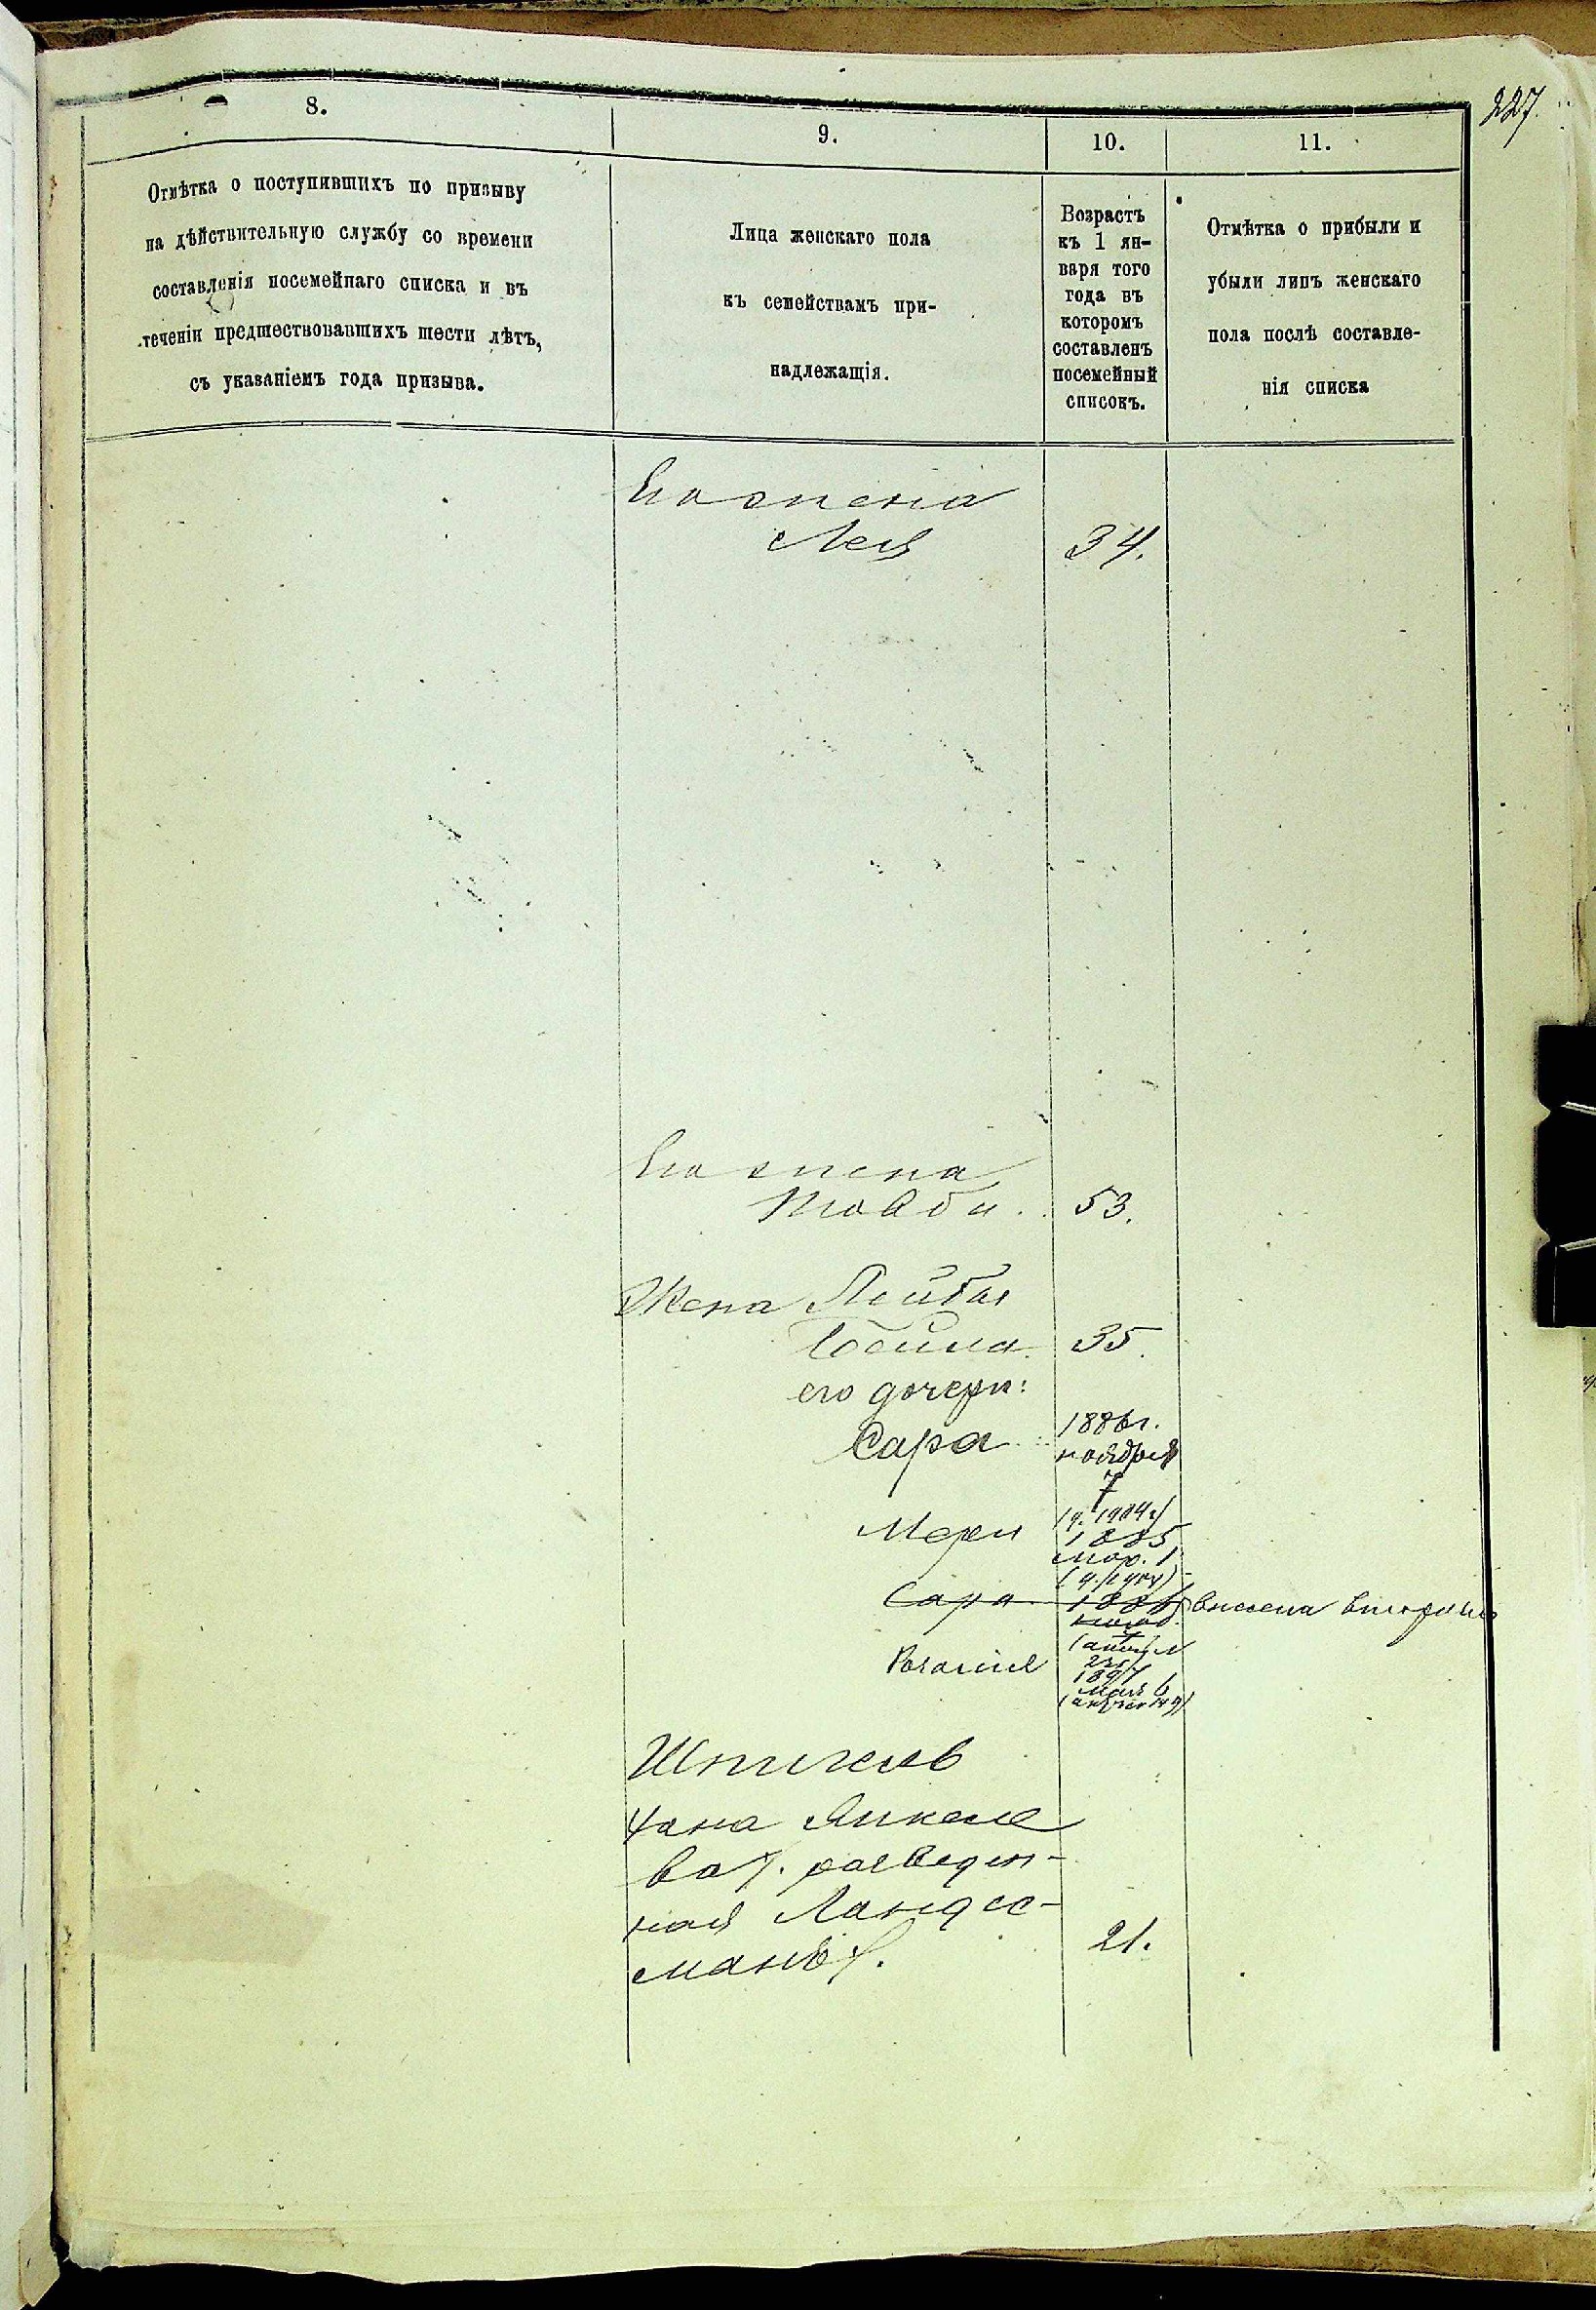 227.
8.
9.
10.
11.
Отмѣтка о поступившихъ по призыву
на дѣйствительную службу со времени
составленія посемейнаго списка и въ
теченіи предшествовавшихъ шести лѣтъ,
съ указаніемъ года призыва.
Лица женскаго пола
къ семействамъ при-
надлежащія.
Возрастъ
къ 1 ян-
варя того
года въ
которомъ
составленъ
посемейный
списокъ.
Отмѣтка о прибыли и
убыли лицъ женскаго
пола послѣ составле-
нія списка
Его жена
Лея 34.
Его жена
53.
Жена Лейбы
Бейла 35.
его дочери:
Сара 1886 г.
ноября
7
Мери 1885
мар. 1
Сара 1886 внесена вторично
1897
мая 6
Хана Янкеле
ва, разведен-
ная Ландес-
манъ. 21.